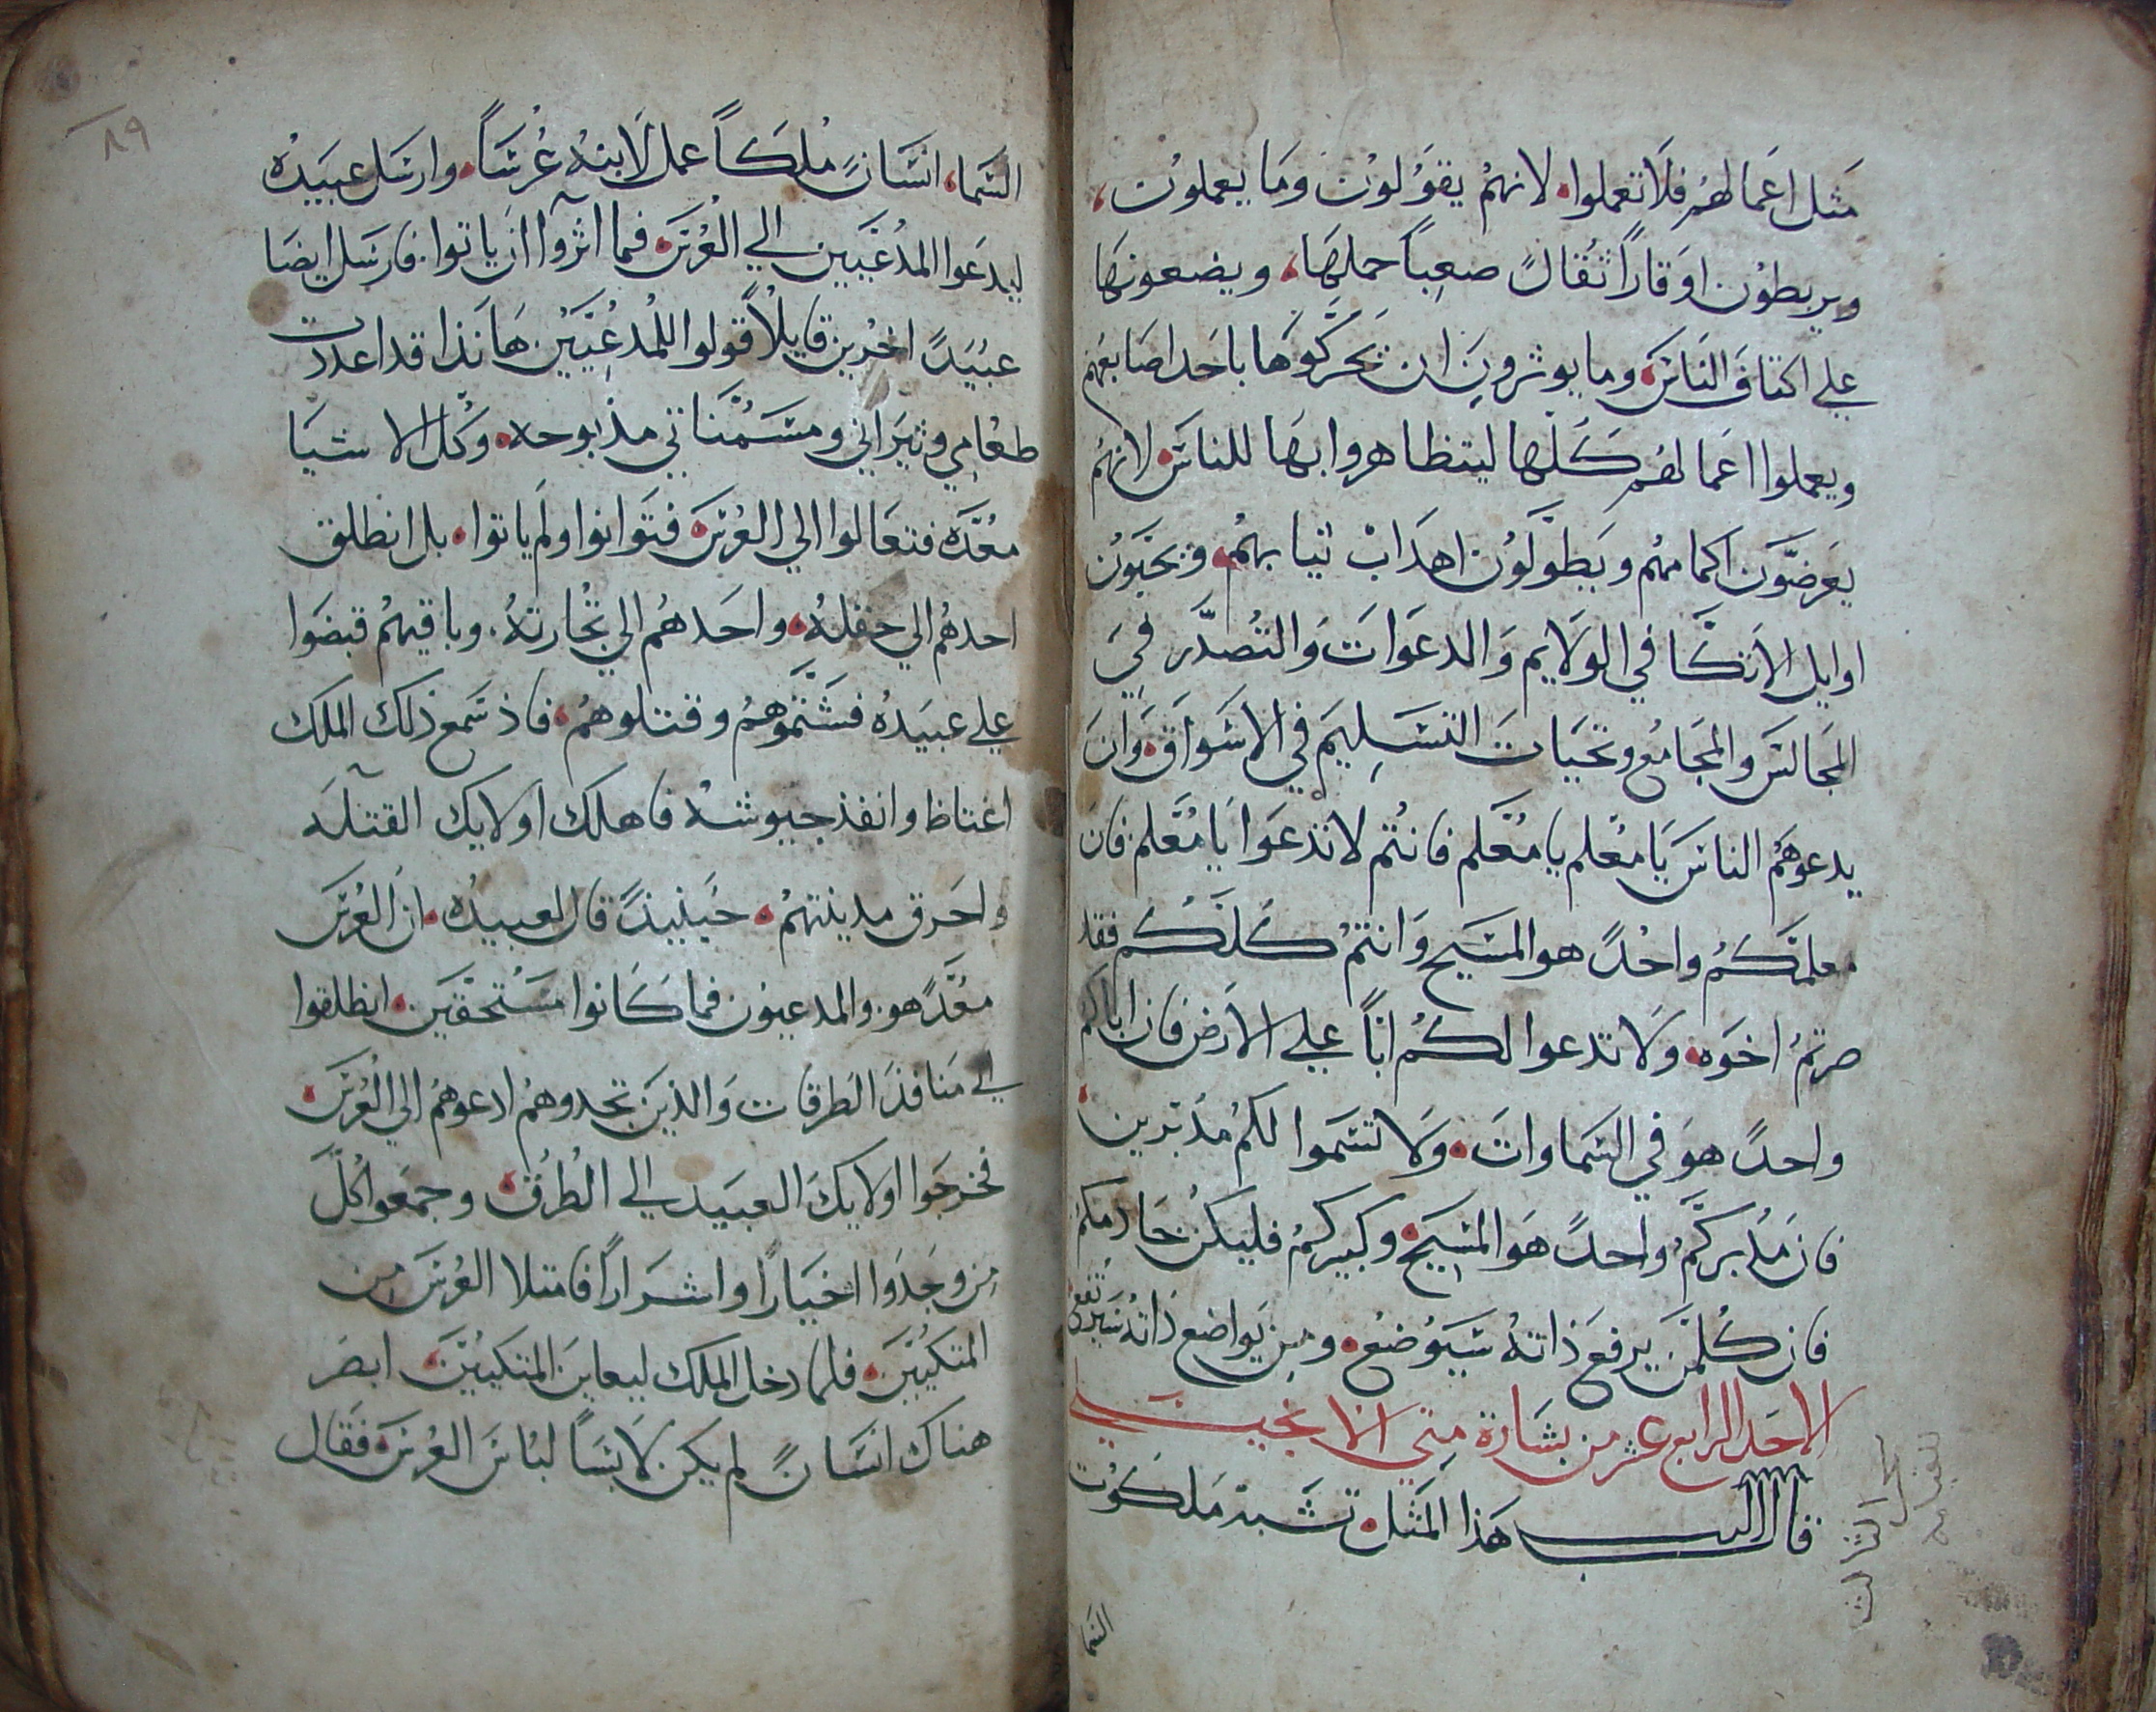 مثل اعمالهم فلا تعملوا، لانهم يقولون وما يعملون،
ويربطون اوقاراً ثقالً صعباً حملها، ويضعونها
علي اكتاف الناس، وما يوثرون ان يحركوها باحد اصابعهم
ويعملوا اعمالهم كلها ليتظاهروا بها للناس، لانهم
يعرضون اكمامهم ويطولون اهداب ثيابهم، ويحبون
اوايل الاتكا في الولايم والدعوات والتصدر في
المجالس والمجامع وتحيات التسليم في الاسواق، وان
يدعوهم الناس يا معلم يا معلم فانتم لا تدعوا يا معلم فان
معلمكم واحدً هو المسيح وانتم كلكم فقد
صرتم اخوه، ولا تدعوا لكم اباً علي الارض فان اباكم
واحدً هو في السماوات، ولا تسموا لكم مدبرين،
فان مدبركم واحدً هو المسيح، وكبيركم فليكن خادمكم
فان كلمن يرفع ذاته سيوضع، ومن يواضع ذاته سيرتفع
الاحد الرابع عشر من بشارة متي الانجيلي
قال الرب هذا المثل، تشبه ملكوت
السما
٨٩
السما، انسانً ملكاً عمل لابنه عرساً، وارسل عبيده
ليدعوا المدعيين الي العرس، فما اثروا ان ياتوا. فارسل ايضا
عبيدً اخرين قايلاً قولوا للمدعيين هانذا قد اعددت
طعامي وثيراني ومسمناتي مذبوحه، وكل الاشيا
معده فتعالوا الي العرس، فتوانوا ولم ياتوا، بل انطلق
احدهم الي حقله، واحدهم الي تجارته. وباقيهم قبضوا
علي عبيده فشتموهم وقتلوهم، فاذ سمع ذلك الملك
اغتاظ وانفذ جيوشه فاهلك اولايك القتله
واحرق مدينتهم، حينيذً قال لعبيده، ان العرس
معدً هو. والمدعيون فما كانوا مستحقين، انطلقوا
الي منافذ الطرقات والذين تجدوهم ادعوهم الي العرس،
فخرجوا اولايك العبيد الي الطرق، وجمعوا كل
من وجدوا اخياراً واشراراً فامتلا العرس من
المتكيين، فلما دخل الملك ليعاين المتكيين، ابصر
هناك انسانً لم يكن لابساً لباس العرس، فقال